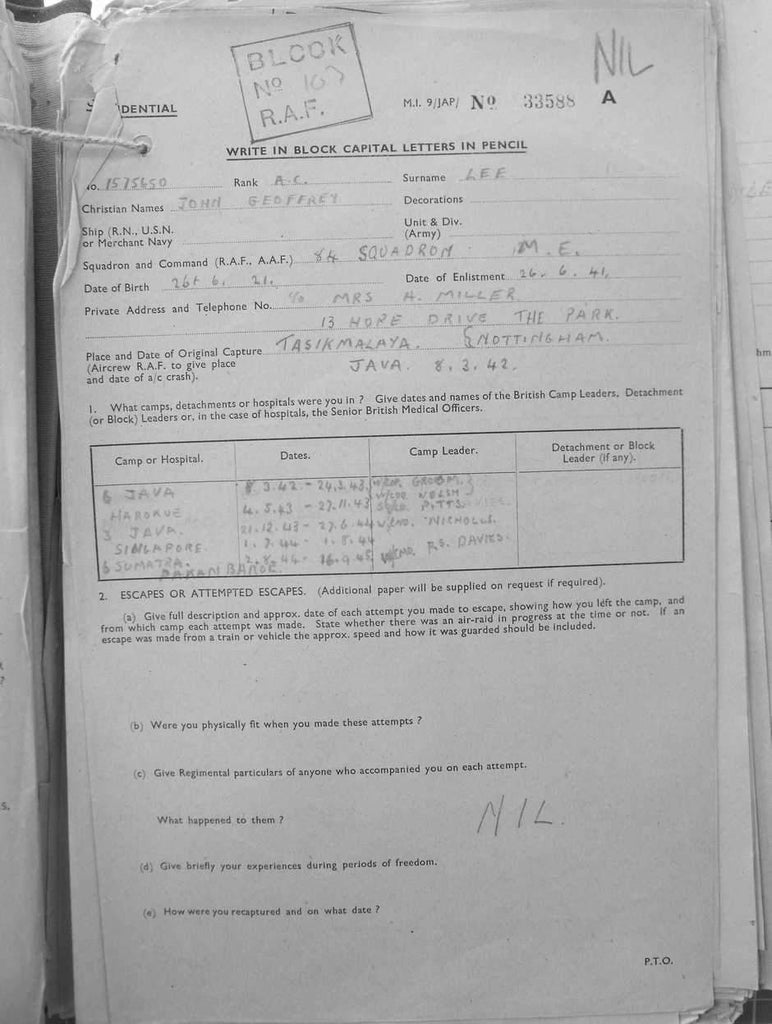 BLOCK
Nº 
R.A.F.
NIL
DENTIAL
M.I. 9/JAP/ Nº 33588 A
WRITE IN BLOCK CAPITAL LETTERS IN PENCIL
No. 1575650 Rank A.C. Surname LEE
Christian Names JOHN GEOFFREY Decorations
Ship (R.N., U.S.N. or Merchant Navy
Unit & Div. (Army)
Squadron and Command (R.A.F., A.A.F.) 84 SQUADRON M.E.
Date of Birth 26 6. 21. Date of Enlistment 26. 6. 41.
Private Address and Telephone No. c/o MRS A. MILLER
13 HOPE DRIVE THE PARK.
NOTTINGHAM.
Place and Date of Original Capture TASIKMALAYA.
(Aircrew R.A.F. to give place JAVA. 8. 3. 42.
and date of a/c crash).
1. What camps, detachments or hospitals were you in ? Give dates and names of the British Camp Leaders, Detachment
(or Block) Leaders or, in the case of hospitals, the Senior British Medical Officers.
Camp or Hospital. Dates. Camp Leader. Detachment or Block Leader (if any).
6 JAVA 8. 3.42. - 24.3.43. W/CDR. GROOM.
W/CDR WELSH
HAROKUE 4. 5.43 - 27.11.43 PITTS
3 JAVA. 21.12.43 - 27.6.44 W/CMD. NICHOLLS.
SINGAPORE. 1. 7. 44 - 1. 8. 44
6 SUMATRA. 2. 8. 44 - 16.9.45 W/CMD. P.S. DAVIES.
PAKAN BAROE.
2. ESCAPES OR ATTEMPTED ESCAPES. (Additional paper will be supplied on request if required).
(a) Give full description and approx. date of each attempt you made to escape, showing how you left the camp, and
from which camp each attempt was made. State whether there was an air-raid in progress at the time or not. If an
escape was made from a train or vehicle the approx. speed and how it was guarded should be included.
(b) Were you physically fit when you made these attempts ?
(c) Give Regimental particulars of anyone who accompanied you on each attempt.
What happened to them ?
NIL.
(d) Give briefly your experiences during periods of freedom.
(e) How were you recaptured and on what date ?
P.T.O.